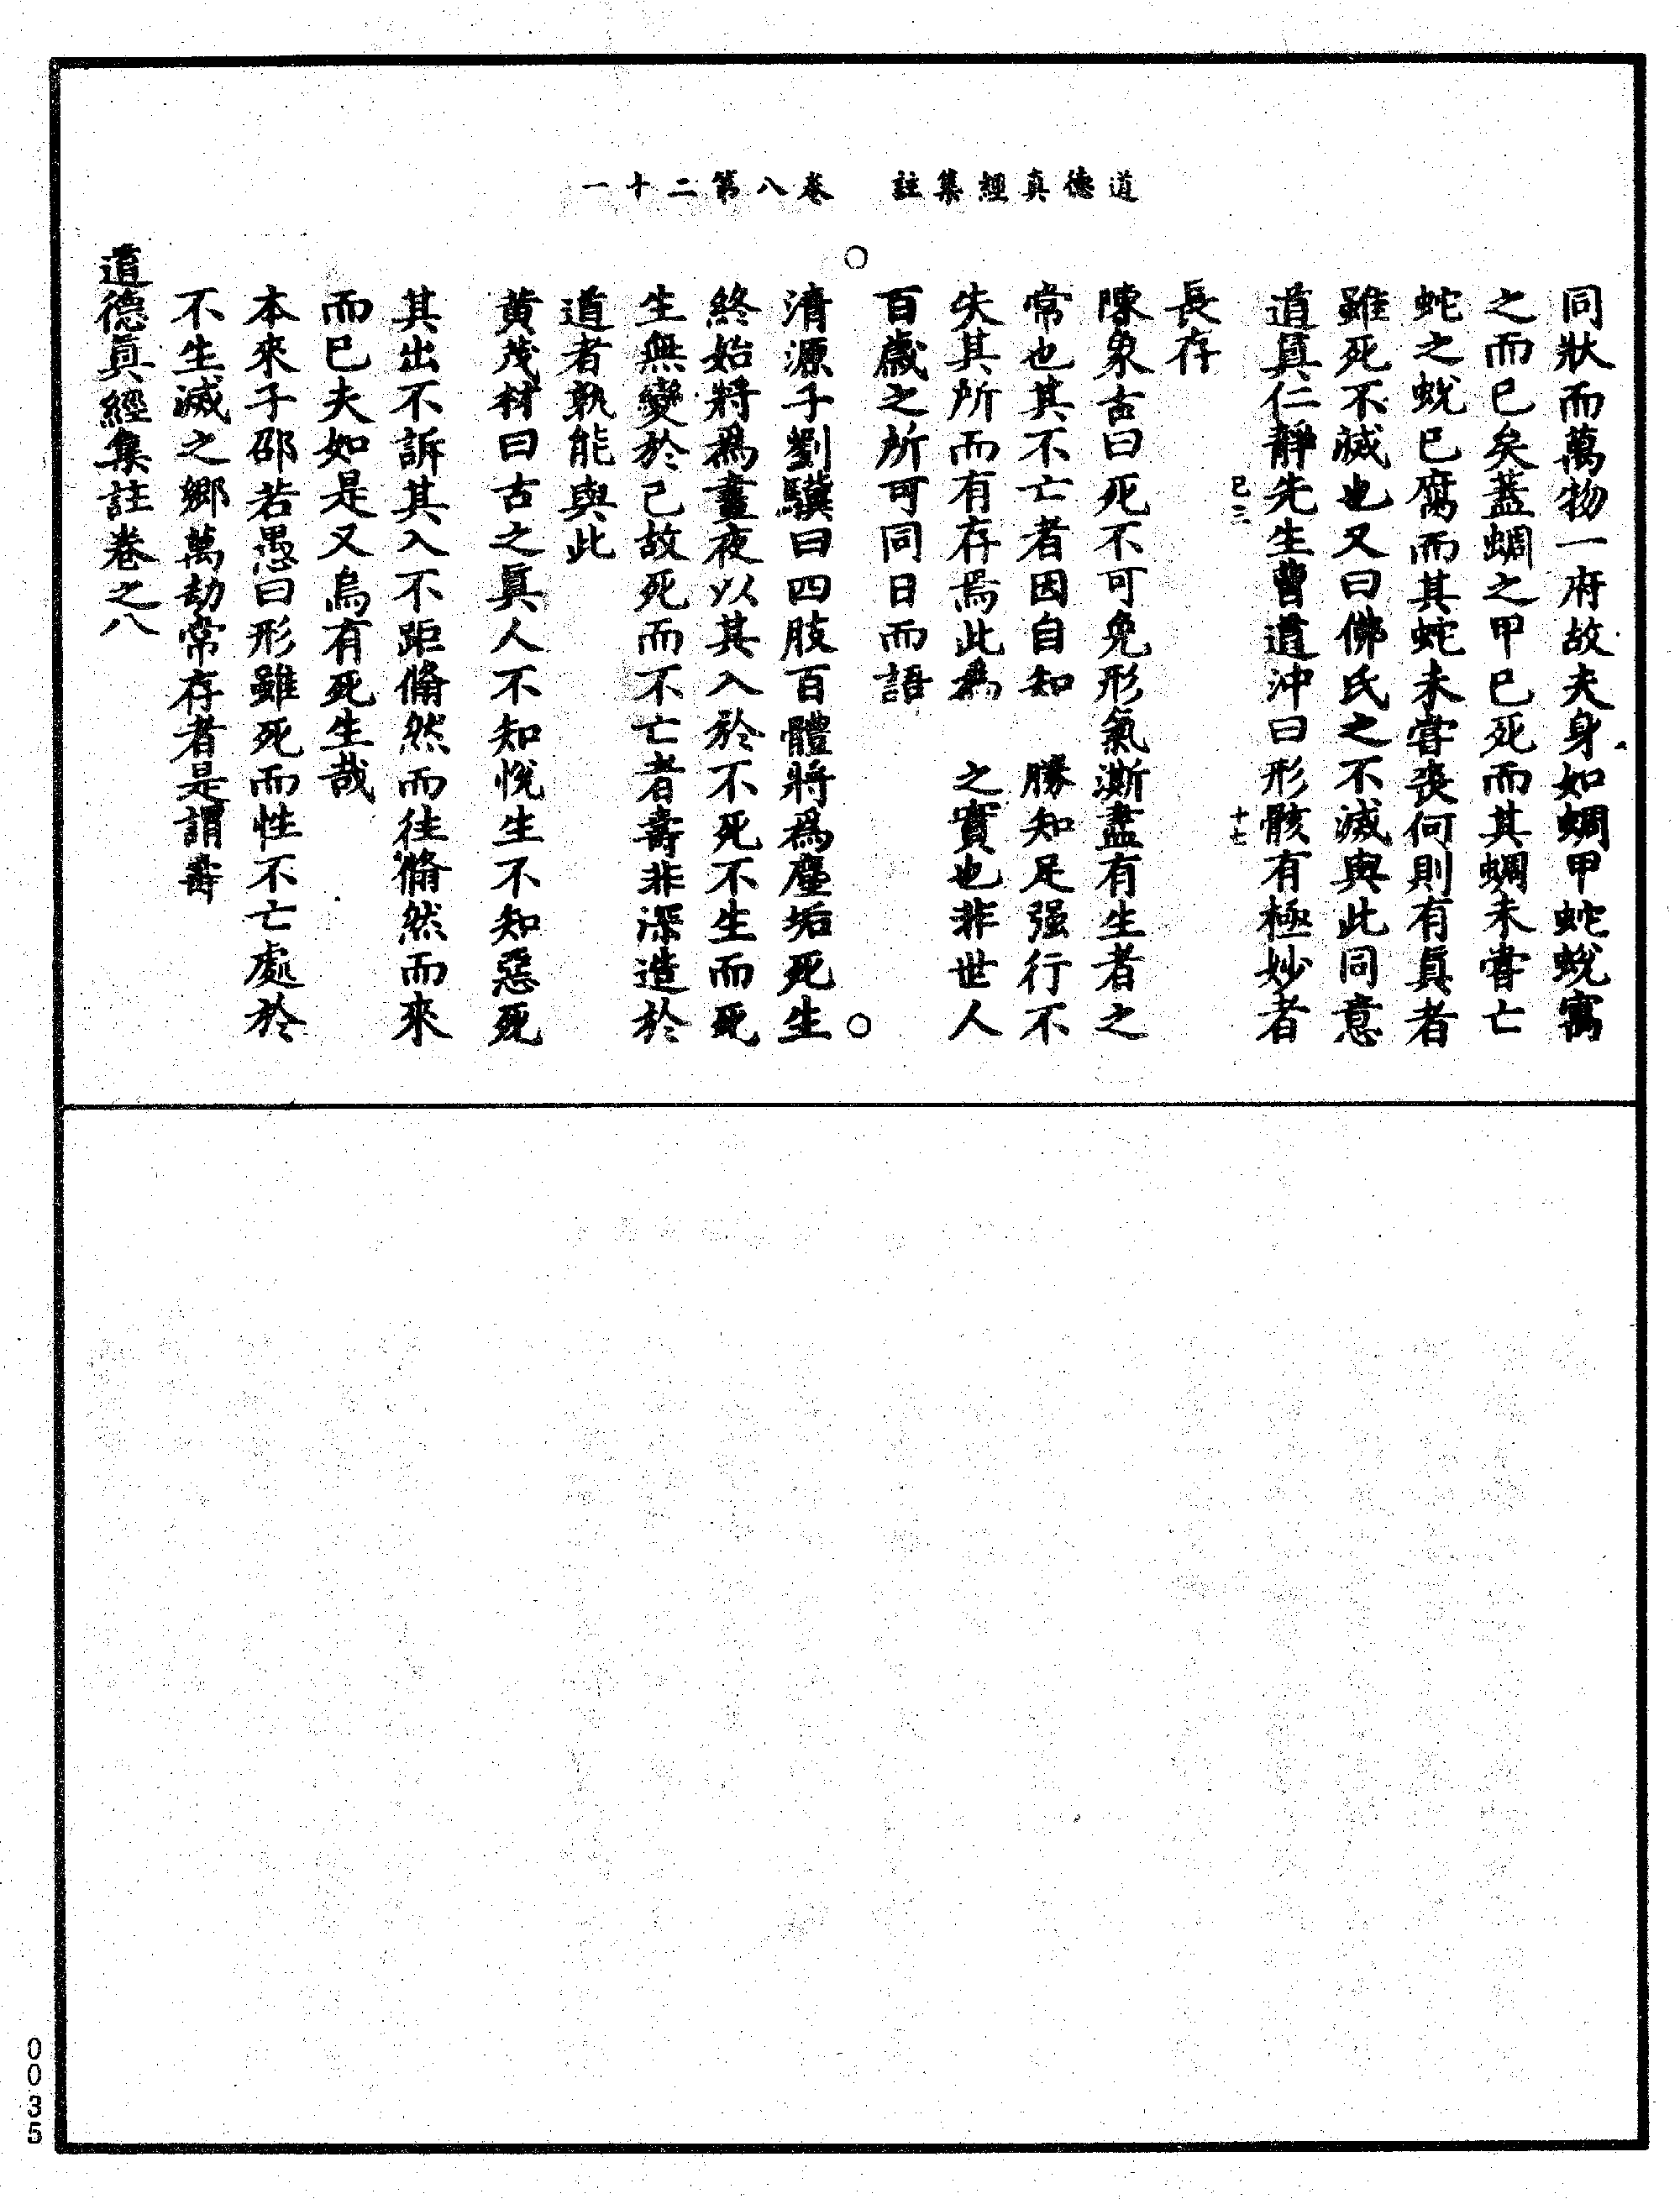 道德真經集註　卷八第二十一
同狀而萬物一府故夫身如蜩甲蛇蛻寓
之而已矣蓋蜩之甲已死而其蜩未嘗亡
蛇之蛻已腐而其蛇未嘗喪何則有眞者
雖死不滅也又曰佛氏之不滅與此同意
道真仁靜先生曹道沖曰形骸有極妙者
已三　十七
長存
陳象古曰死不可免形氣澌盡有生者之
常也其不亡者因自知　勝知足强行不
失其所而有存焉此為　之實也非世人
百歲之所可同日而語
○　○
清源子劉驥曰四肢百體將爲塵垢死生
終始將爲晝夜以其入於不死不生而死
生無變於己故死而不亡者壽非深造於
道者孰能與此
黄茂材曰古之眞人不知悅生不知惡死
其出不訴其入不距翛然而往翛然而來
而已夫如是又烏有死生哉
本來子邵若愚曰形雖死而性不亡處於
不生滅之鄉萬劫常存者是謂壽
道德眞經集註卷之八
0035